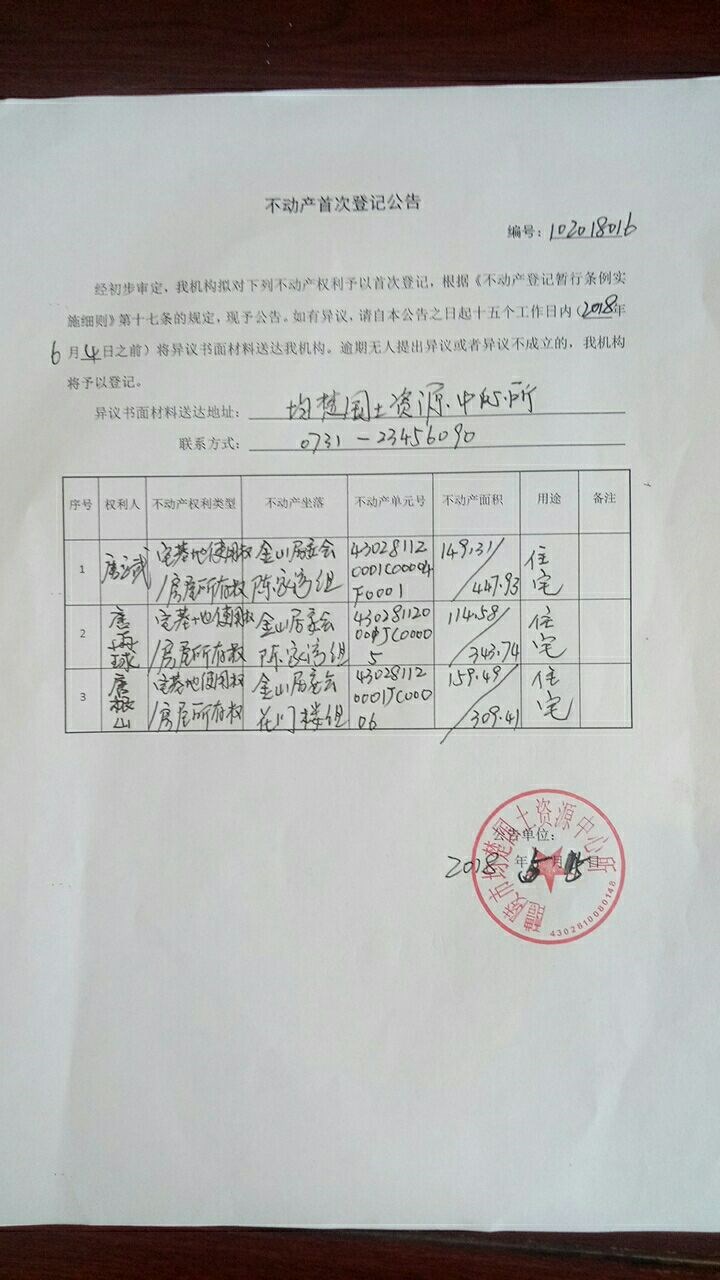 不动产首次登记公告
编号：102018016
经初步审定，我机构拟对下列不动产权利予以首次登记，根据《不动产登记暂行条例实
施细则》第十七条的规定，现予公告。如有异议，请自本公告之日起十五个工作日内（2018年
6月4日之前）将异议书面材料送达我机构。逾期无人提出异议或者异议不成立的，我机构
将予以登记。
异议书面材料送达地址：均楚国土资源中心所
联系方式：0731-23456090
序号 权利人 不动产权利类型 不动产坐落 不动产单元号 不动产面积 用途 备注
1 宅基地使用权/房屋所有权 金山居委会陈家湾组 430281120001JC00004F0001 149.31/447.93 住宅
2 唐再球 宅基地使用权/房屋所有权 金山居委会陈家湾组 430281120001JC00005 114.58/343.74 住宅
3 唐根山 宅基地使用权/房屋所有权 金山居委会花门楼组 430281120001JC00006 159.49/309.41 住宅
公告单位：
2018年5月15日
醴陵市均楚国土资源中心所
4302810080148